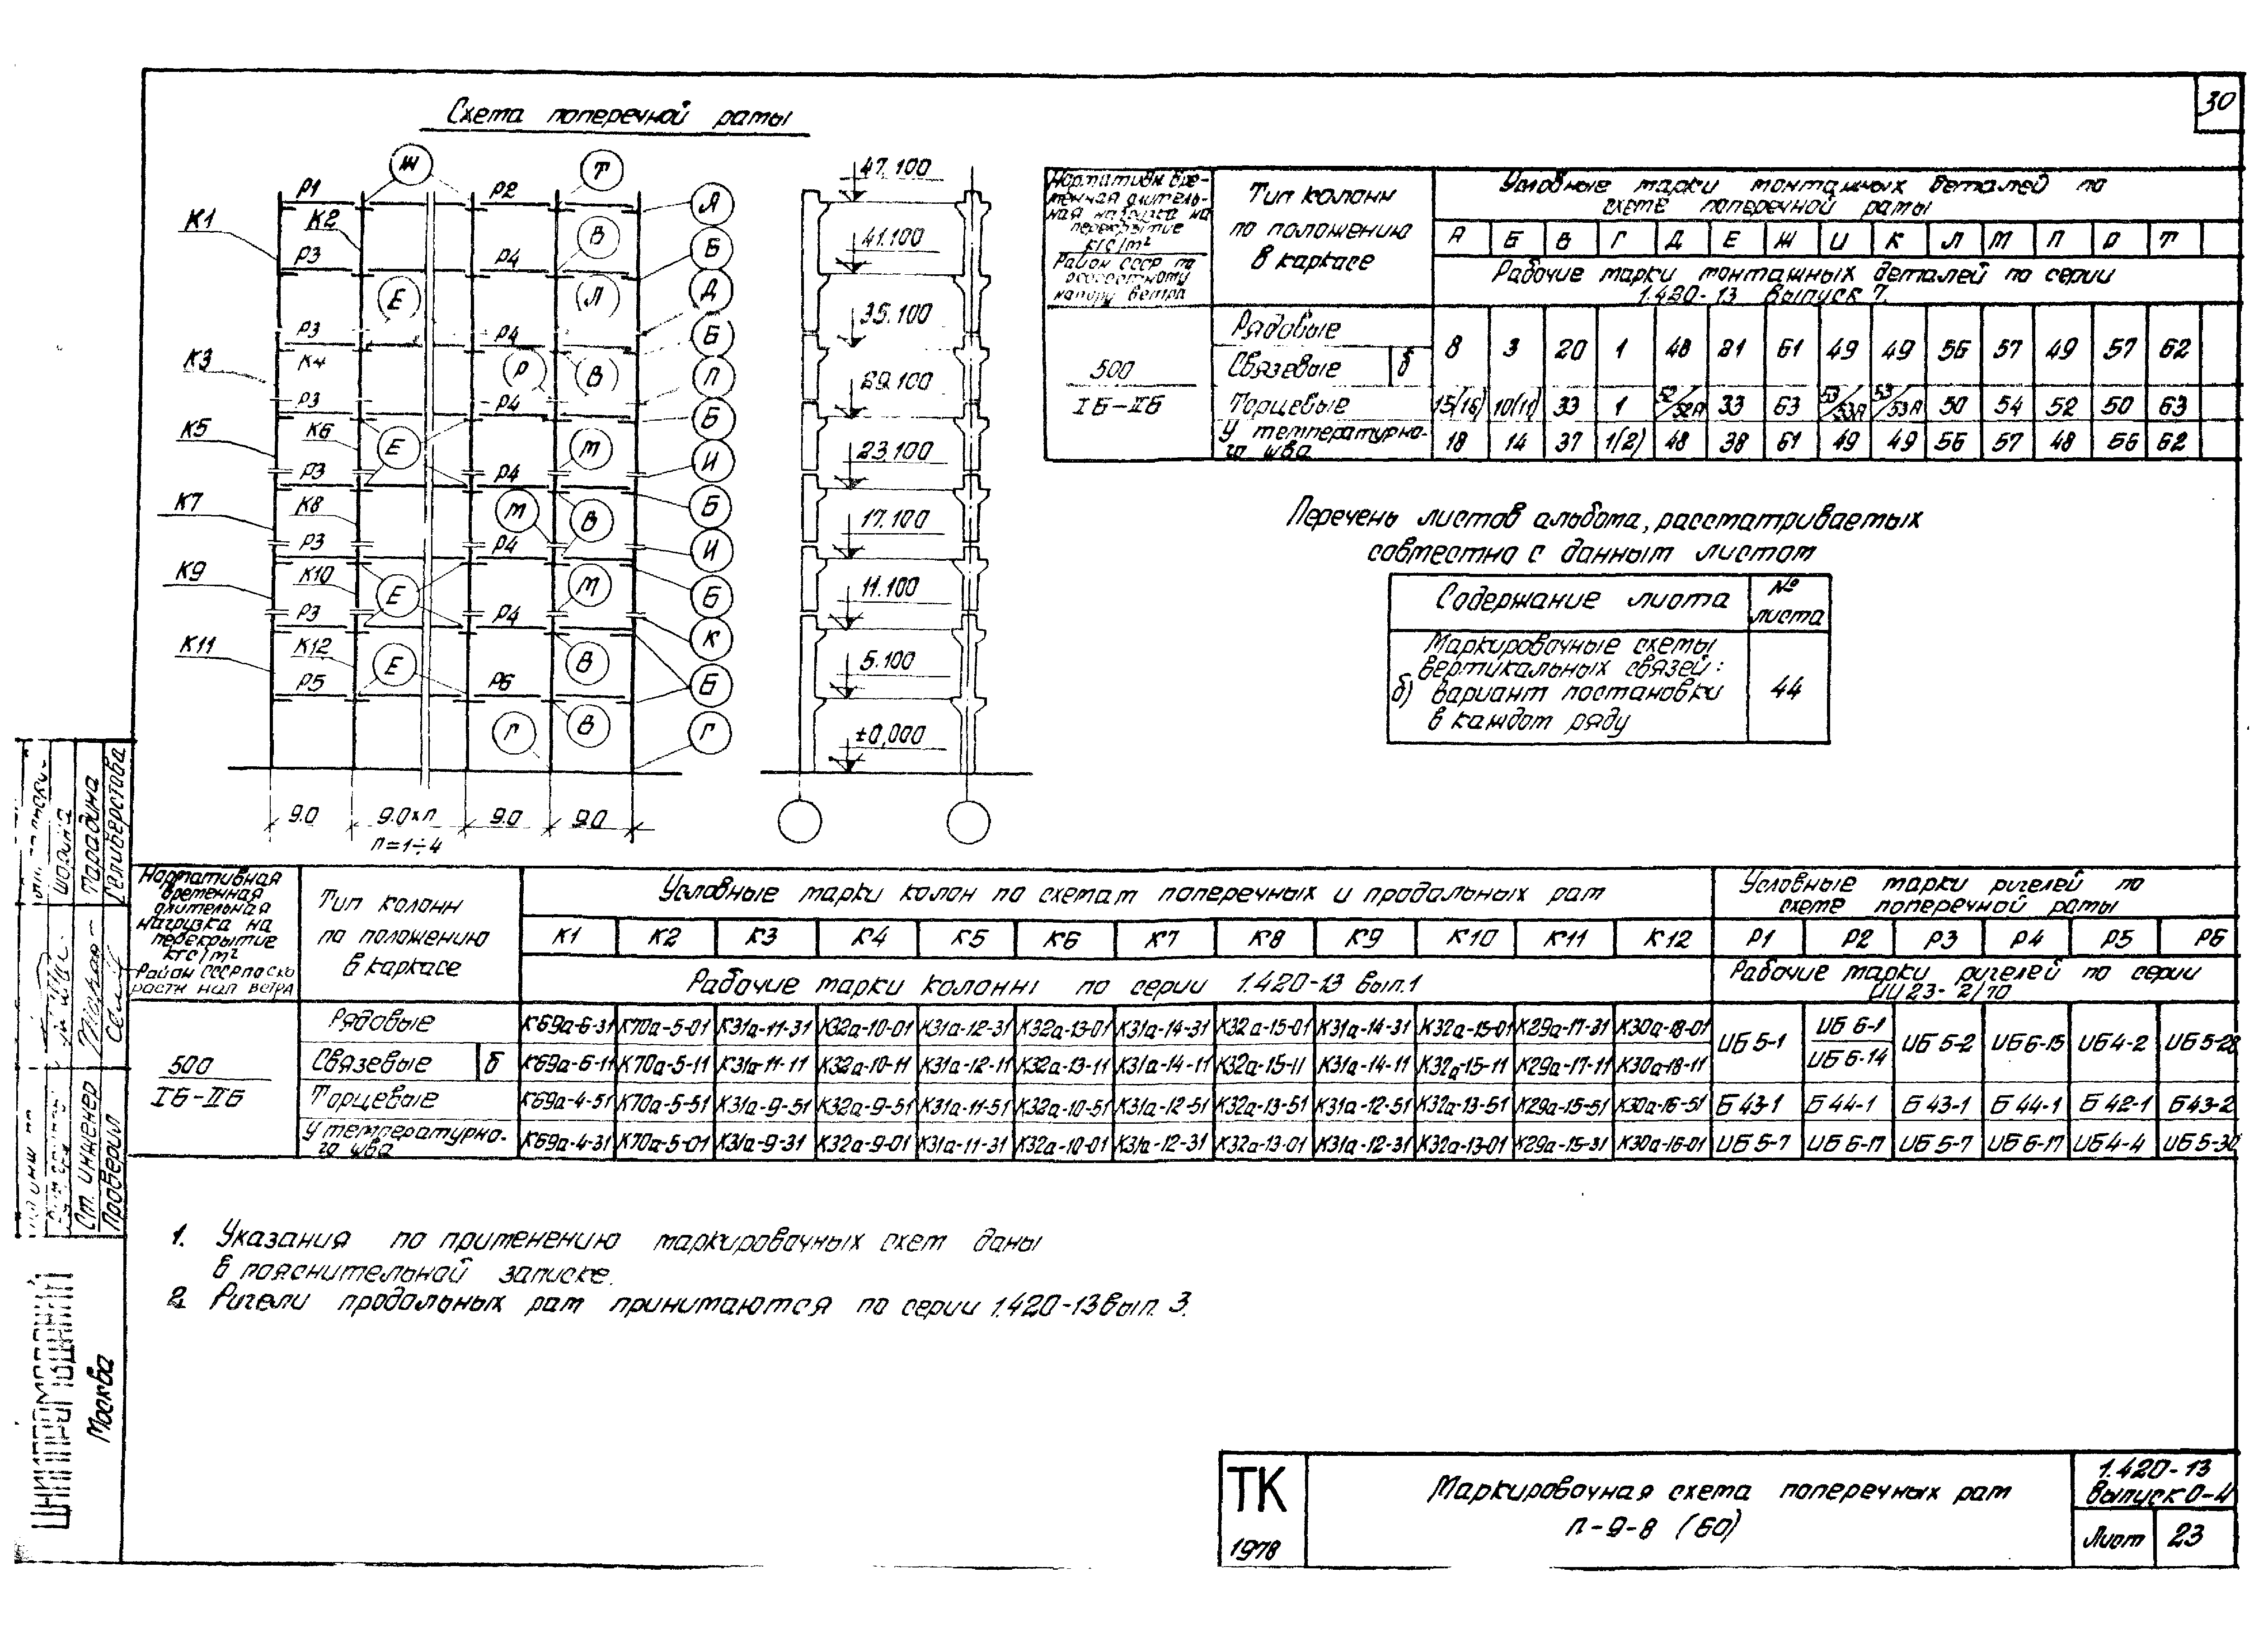 30
Схема поперечной рамы
Ж Т
Р1 Р2 А
К1 К2 В Б
Р3 Р4 Д
Е Л
Р3 Р4 Б
К3 К4 Р В П
Р3 Р4 Б
К5 К6 Е М И
Р3 Р4
К7 К8 М В Б
Р3 Р4 И
К9 К10 Е М Б
Р3 Р4 К
К11 К12 Е В
Р5 Р6 Б
Г В Г
9.0 9.0хп 9.0 9.0
п=1÷4
47.100
41.100
35.100
29.100
23.100
17.100
11.100
5.100
±0,000
Нормативн вре-
менная длитель-
ная нагрузка на
перекрытие
кгс/м²
Район СССР по
скоростному
напору ветра
Тип колонн
по положению
в каркасе
Условные марки монтажных деталей по
схеме поперечной рамы
А Б В Г Д Е Ж И К Л М П Р Т
Рабочие марки монтажных деталей по серии
1.420-13 выпуск 7.
500
IБ-IIБ
Рядовые
Связевые б
8 3 20 1 48 21 61 49 49 56 57 49 57 62
Торцевые 15(16) 10(11) 33 1 52/52А 33 63 53/53А 53/53А 50 54 52 50 63
У температурно-
го шва 18 14 37 1(2) 48 38 61 49 49 56 57 48 56 62
Перечень листов альбома, рассматриваемых
совместно с данным листом
Содержание листа № листа
Маркировочные схемы
вертикальных связей:
б) вариант постановки
в каждом ряду
44
Нормативная
временная
длительная
нагрузка на
перекрытие
кгс/м²
Район СССР по ско
рости нап ветра
Тип колонн
по положению
в каркасе
Условные марки колон по схемам поперечных и продальных рам
К1 К2 К3 К4 К5 К6 К7 К8 К9 К10 К11 К12
Рабочие марки колонны по серии 1.420-13 вып.1
Условные марки ригелей по
схеме поперечной рамы
Р1 Р2 Р3 Р4 Р5 Р6
Рабочие марки ригелей по серии
ИИ23-2/70
500
IБ-IIБ
Рядовые К69а-6-31 К70а-5-01 К31а-11-31 К32а-10-01 К31а-12-31 К32а-13-01 К31а-14-31 К32а-15-01 К31а-14-31 К32а-15-01 К29а-17-31 К30а-18-01
Связевые б К69а-6-11 К70а-5-11 К31а-11-11 К32а-10-11 К31а-12-11 К32а-13-11 К31а-14-11 К32а-15-11 К31а-14-11 К32а-15-11 К29а-17-11 К30а-18-11
ИБ 5-1 ИБ 6-1 ИБ 6-14 ИБ 5-2 ИБ 6-15 ИБ 4-2 ИБ 5-28
Торцевые К69а-4-51 К70а-5-51 К31а-9-51 К32а-9-51 К31а-11-51 К32а-10-51 К31а-12-51 К32а-13-51 К31а-12-51 К32а-13-51 К29а-15-51 К30а-16-51 Б 43-1 Б 44-1 Б 43-1 Б 44-1 Б 42-1 Б 43-2
У температурно-
го шва К69а-4-31 К70а-5-01 К31а-9-31 К32а-9-01 К31а-11-31 К32а-10-01 К31а-12-31 К32а-13-01 К31а-12-31 К32а-13-01 К29а-15-31 К30а-16-01 ИБ 5-7 ИБ 6-17 ИБ 5-7 ИБ 6-17 ИБ 4-4 ИБ 5-30
1. Указания по применению маркировочных схем даны
в пояснительной записке.
2. Ригели продальных рам принимаются по серии 1.420-13 вып. 3.
Ст. инженер
Проверил
Тарадина
Селиверстова
ЦНИИПРОМЗДАНИЙ
Москва
ТК
1978
Маркировочная схема поперечных рам
п-9-8 (60)
1.420-13
Выпуск 0-4
Лист 23